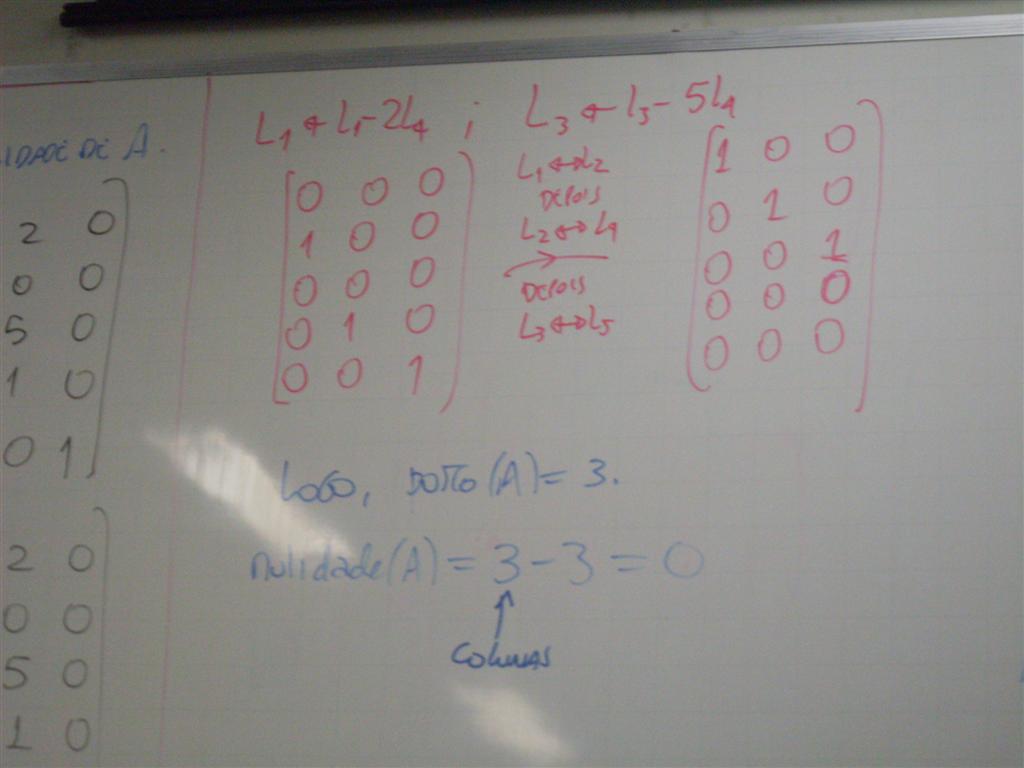 IDADE DE A.
2 0
0 0
5 0
1 0
0 1
2 0
0 0
5 0
1 0
L1 ← L1 - 2L4 ; L3 ← L3 - 5L4
0 0 0
1 0 0
0 0 0
0 1 0
0 0 1
L1 ↔ L2
DEPOIS
L2 ↔ L4
→
DEPOIS
L3 ↔ L5
1 0 0
0 1 0
0 0 1
0 0 0
0 0 0
LOGO, POSTO (A) = 3.
nulidade (A) = 3 - 3 = 0
↑
COLUNAS